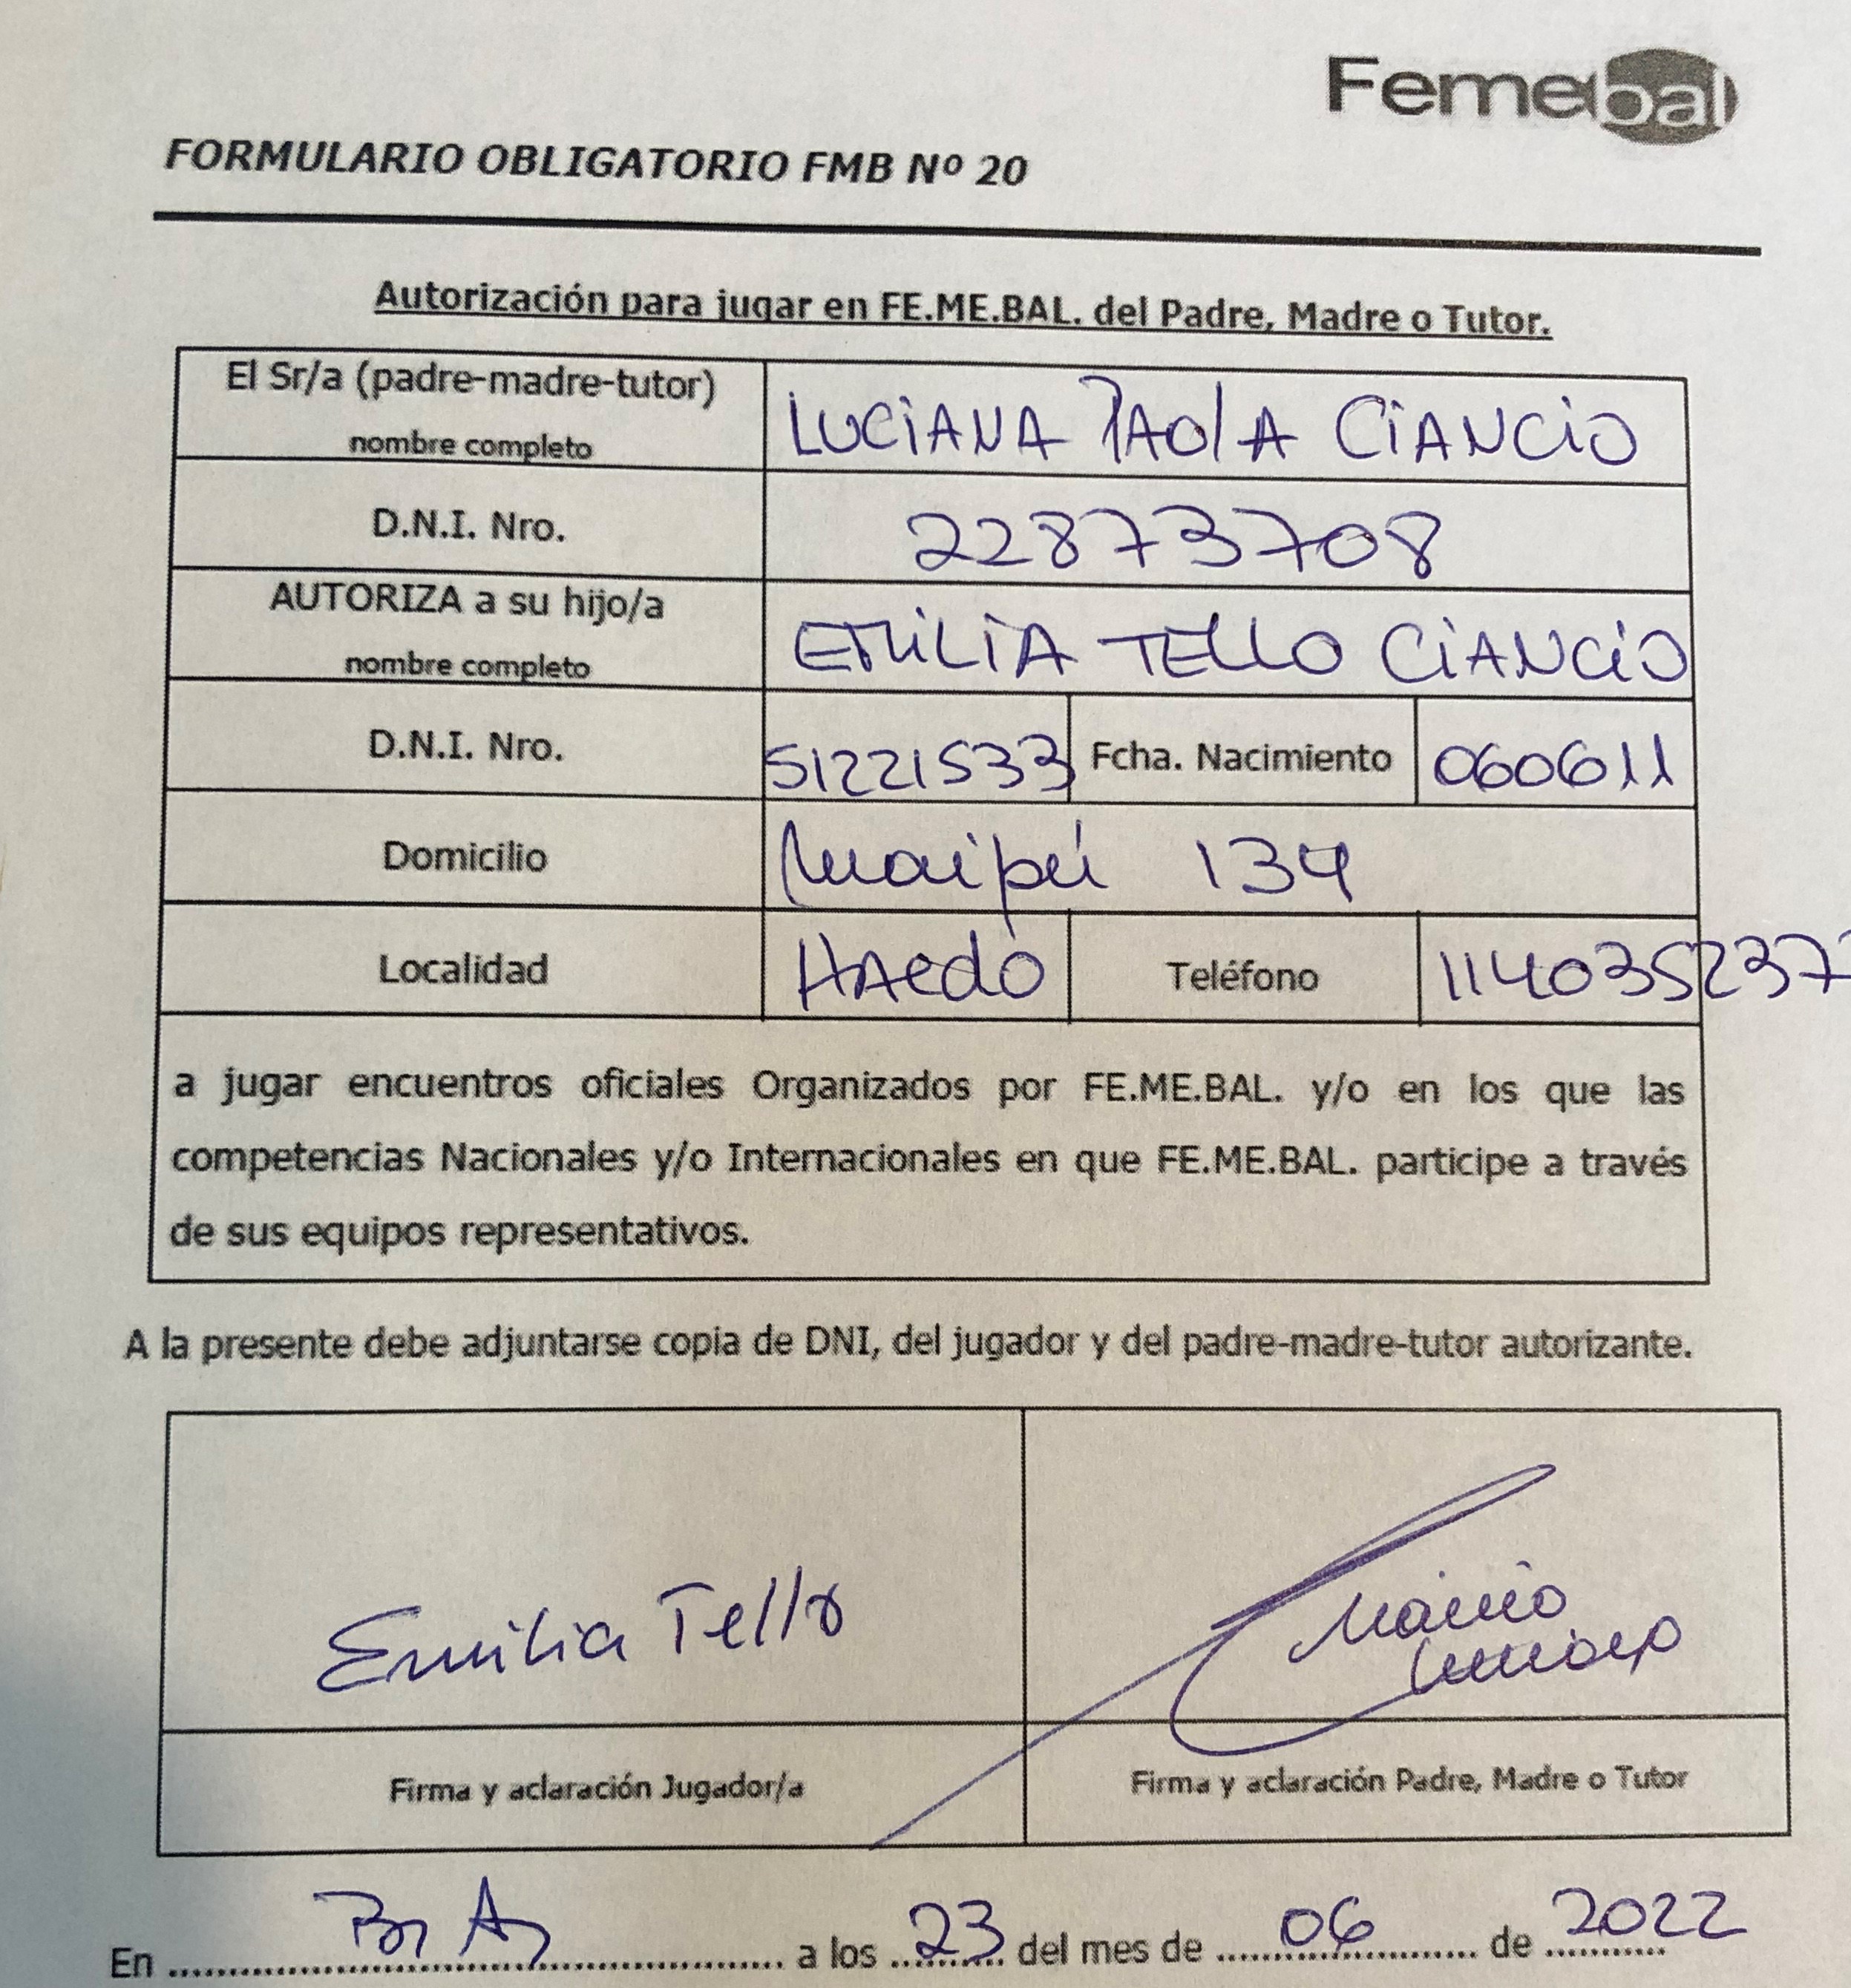 Femebal
FORMULARIO OBLIGATORIO FMB Nº 20
Autorización para jugar en FE.ME.BAL. del Padre, Madre o Tutor.
El Sr/a (padre-madre-tutor)
nombre completo
LUCIANA PAOLA CIANCIO
D.N.I. Nro.
22873708
AUTORIZA a su hijo/a
nombre completo
EMILIA TELLO CIANCIO
D.N.I. Nro.
51221533
Fcha. Nacimiento
060611
Domicilio
Maipú 134
Localidad
HAedo
Teléfono
1140352377
a jugar encuentros oficiales Organizados por FE.ME.BAL. y/o en los que las
competencias Nacionales y/o Internacionales en que FE.ME.BAL. participe a través
de sus equipos representativos.
A la presente debe adjuntarse copia de DNI, del jugador y del padre-madre-tutor autorizante.
Emilia Tello
Firma y aclaración Jugador/a
Firma y aclaración Padre, Madre o Tutor
En Bs As a los 23 del mes de 06 de 2022